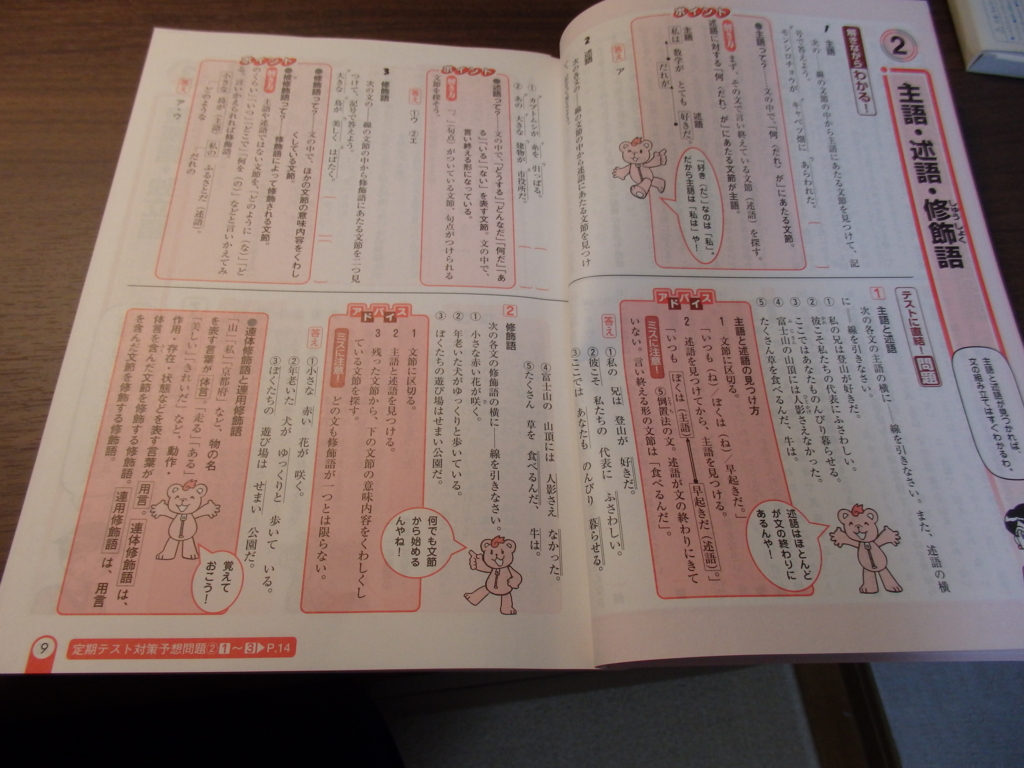 2
主語・述語・修飾語
しゅうしょく
主語と述語が見つかれば、
文の組み立てはすぐわかるわ。
解きながらわかる!
1 主語
次の——線の文節の中から主語にあたる文節を見つけて、記
号で答えよう。
モンシロチョウが キャベツ畑に あらわれた。
答え ア
ポイント
●主語って?——文の中で、「何(だれ)が」にあたる文節。
まず、その文で言い終えている文節(述語)を探す。
述語に対する「何(だれ)が」にあたる文節が主語。
主語 述語
私は 数学が とても 好きだ。
だれが
「好き(だ)」なのは「私」。
だから主語は「私は」や!
2 述語
次の各文の——線の文節の中から述語にあたる文節を見つけ
① カブトムシが 糸を 引っぱる。
② あの 大きな 建物が 市役所だ。
答え ①ウ ②エ
ポイント
●述語って?——文の中で、「どうする」「どんなだ」「何だ」「あ
る」「いる」「ない」を表す文節。文の中で、
言い終える形になっている。
「。」(句点)がついている文節、句点がつけられる
文節を探そう。
3 修飾語
次の文の——線の文節の中から修飾語にあたる文節を二つ見
つけて、記号で答えよう。
大きな 鳥が 美しく はばたく。
答え ア・ウ
ポイント
●修飾語って?——文の中で、ほかの文節の意味内容をくわし
くしている文節。
●被修飾語って?——修飾語によって修飾される文節。
主語や述語ではない文節を、「どのように(な)」「と
小さな 鳥が(主語) 私の ふるさとだ(述語)。
どのような だれの
テストに直結!問題
1 主語と述語
次の各文の主語の横に——線を引きなさい。また、述語の横
に——線を引きなさい。
① 私の兄は登山が好きだ。
② 彼こそ私たちの代表にふさわしい。
③ ここではあなたものんびり暮らせる。
④ 富士山の山頂には人影さえなかった。
⑤ たくさん草を食べるんだ、牛は。
アドバイス
主語と述語の見つけ方
1 文節に区切る。
「いつも(ね)/ぼくは(ね)/早起きだ。」
2 述語を見つけてから、主語を見つける。
「いつも ぼくは(主語) 早起きだ(述語)。」
ミスに注意!
⑤倒置法の文。述語が文の終わりにきて
いない。言い終える形の文節は「食べるんだ」。
述語はほとんど
が文の終わりに
あるんや。
答え
①私の 兄は 登山が 好きだ。
②彼こそ 私たちの 代表に ふさわしい。
③ここでは あなたも のんびり 暮らせる。
④富士山の 山頂には 人影さえ なかった。
⑤たくさん 草を 食べるんだ、 牛は。
2 修飾語
次の各文の修飾語の横に——線を引きなさい。
① 小さな赤い花が咲く。
② 年老いた犬がゆっくりと歩いている。
③ ぼくたちの遊び場はせまい公園だ。
アドバイス
1 文節に区切る。
2 主語と述語を見つける。
3 残った文節から、下の文節の意味内容をくわしくし
ている文節を探す。
ミスに注意!
どの文も修飾語が一つとは限らない。
何でも文節
から始める
んやね!
答え
①小さな 赤い 花が 咲く。
②年老いた 犬が ゆっくりと 歩いて いる。
③ぼくたちの 遊び場は せまい 公園だ。
●連体修飾語と連用修飾語
「山」「私」「京都府」など、物の名
を表す言葉が体言。「走る」「ある」
「美しい」「きれいだ」など、動作・
作用・存在・状態などを表す言葉が用言。連体修飾語は、
体言を含んだ文節を修飾する修飾語。連用修飾語は、用言
を含んだ文節を修飾する修飾語。
覚えて
おこう!
9
定期テスト対策予想問題②1~3▶P.14